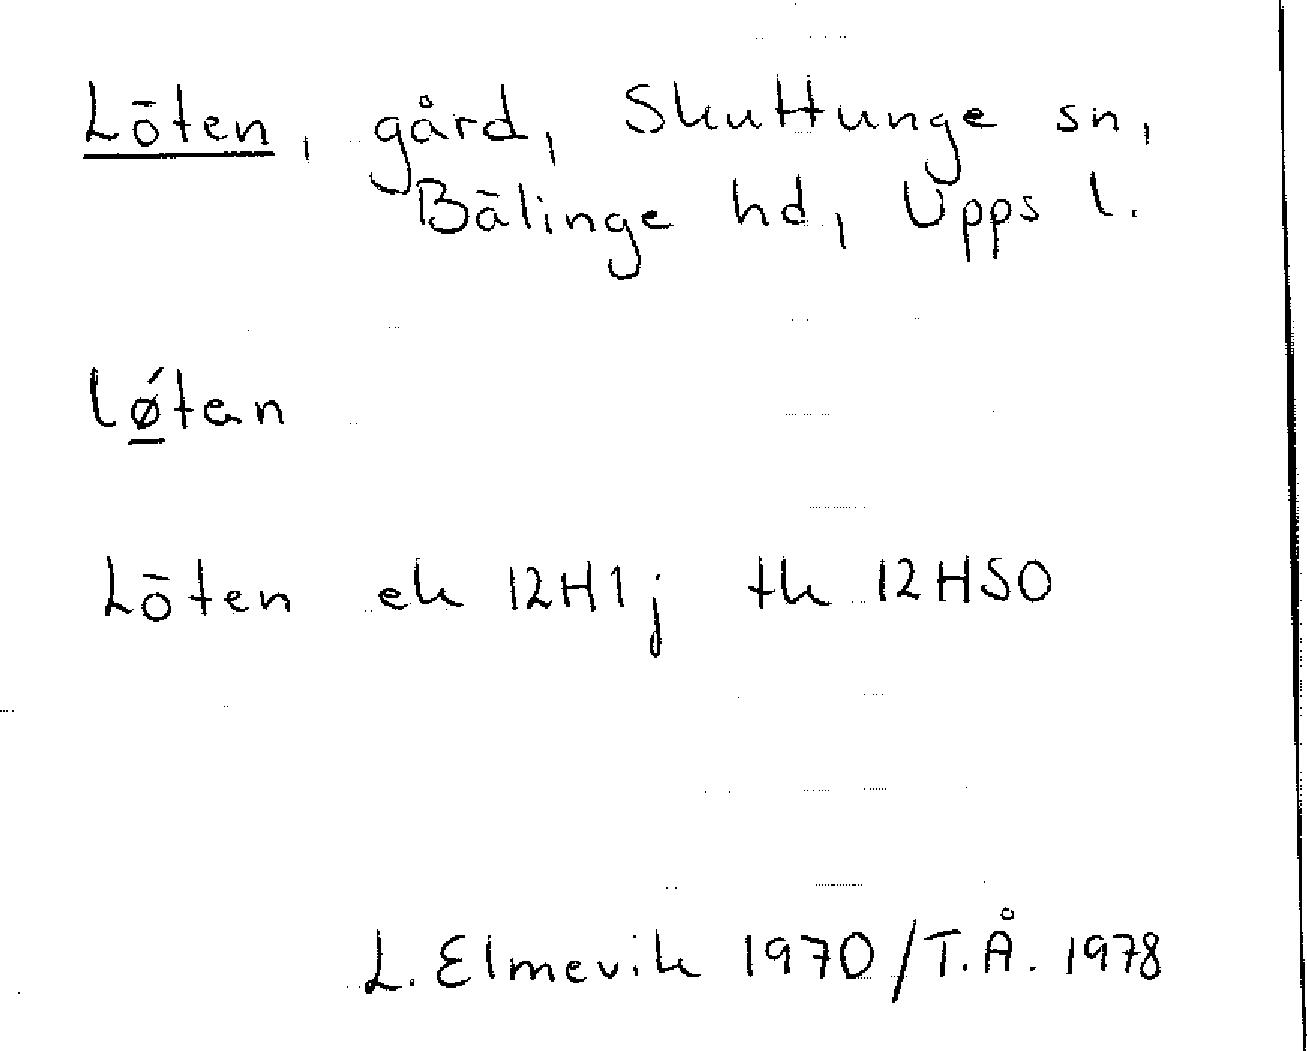 Löten, gård, Skuttunge sn,
Bälinge hd, Upps l.
lǿ̲tan
Löten ek 12H1j tk 12HSO
L. Elmevik 1970/T.Å. 1978